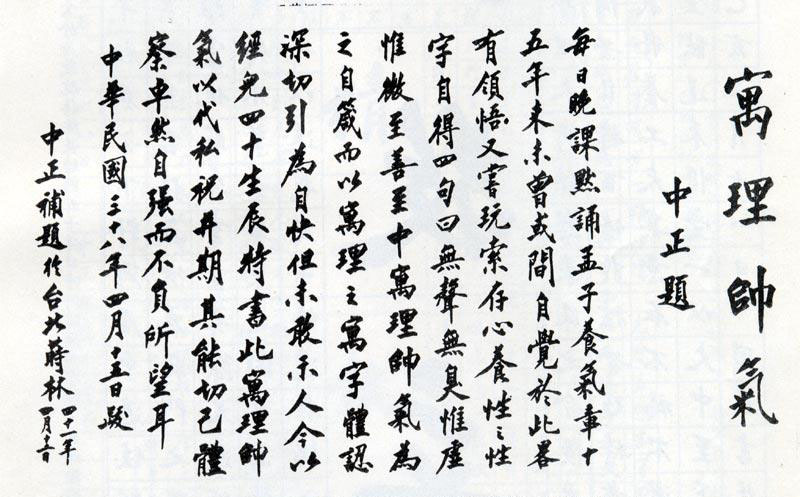 寓理帥氣
中正題
每日晚課默誦孟子養氣章十
五年來未曾或間自覺於此畧
有領悟又嘗玩索存心養性之性
字自得四句曰無聲無臭惟虛
惟微至善至中寓理帥氣為
之自箴而以寓理之寓字體認
深切引為自快但未敢示人今以
經兒四十生辰特書此寓理帥
氣以代私祝并期其能切己體
察卓然自強而不負所望耳
中華民國三十八年四月十五日跋
中正補題於台北蔣林 四十一年
四月十五日